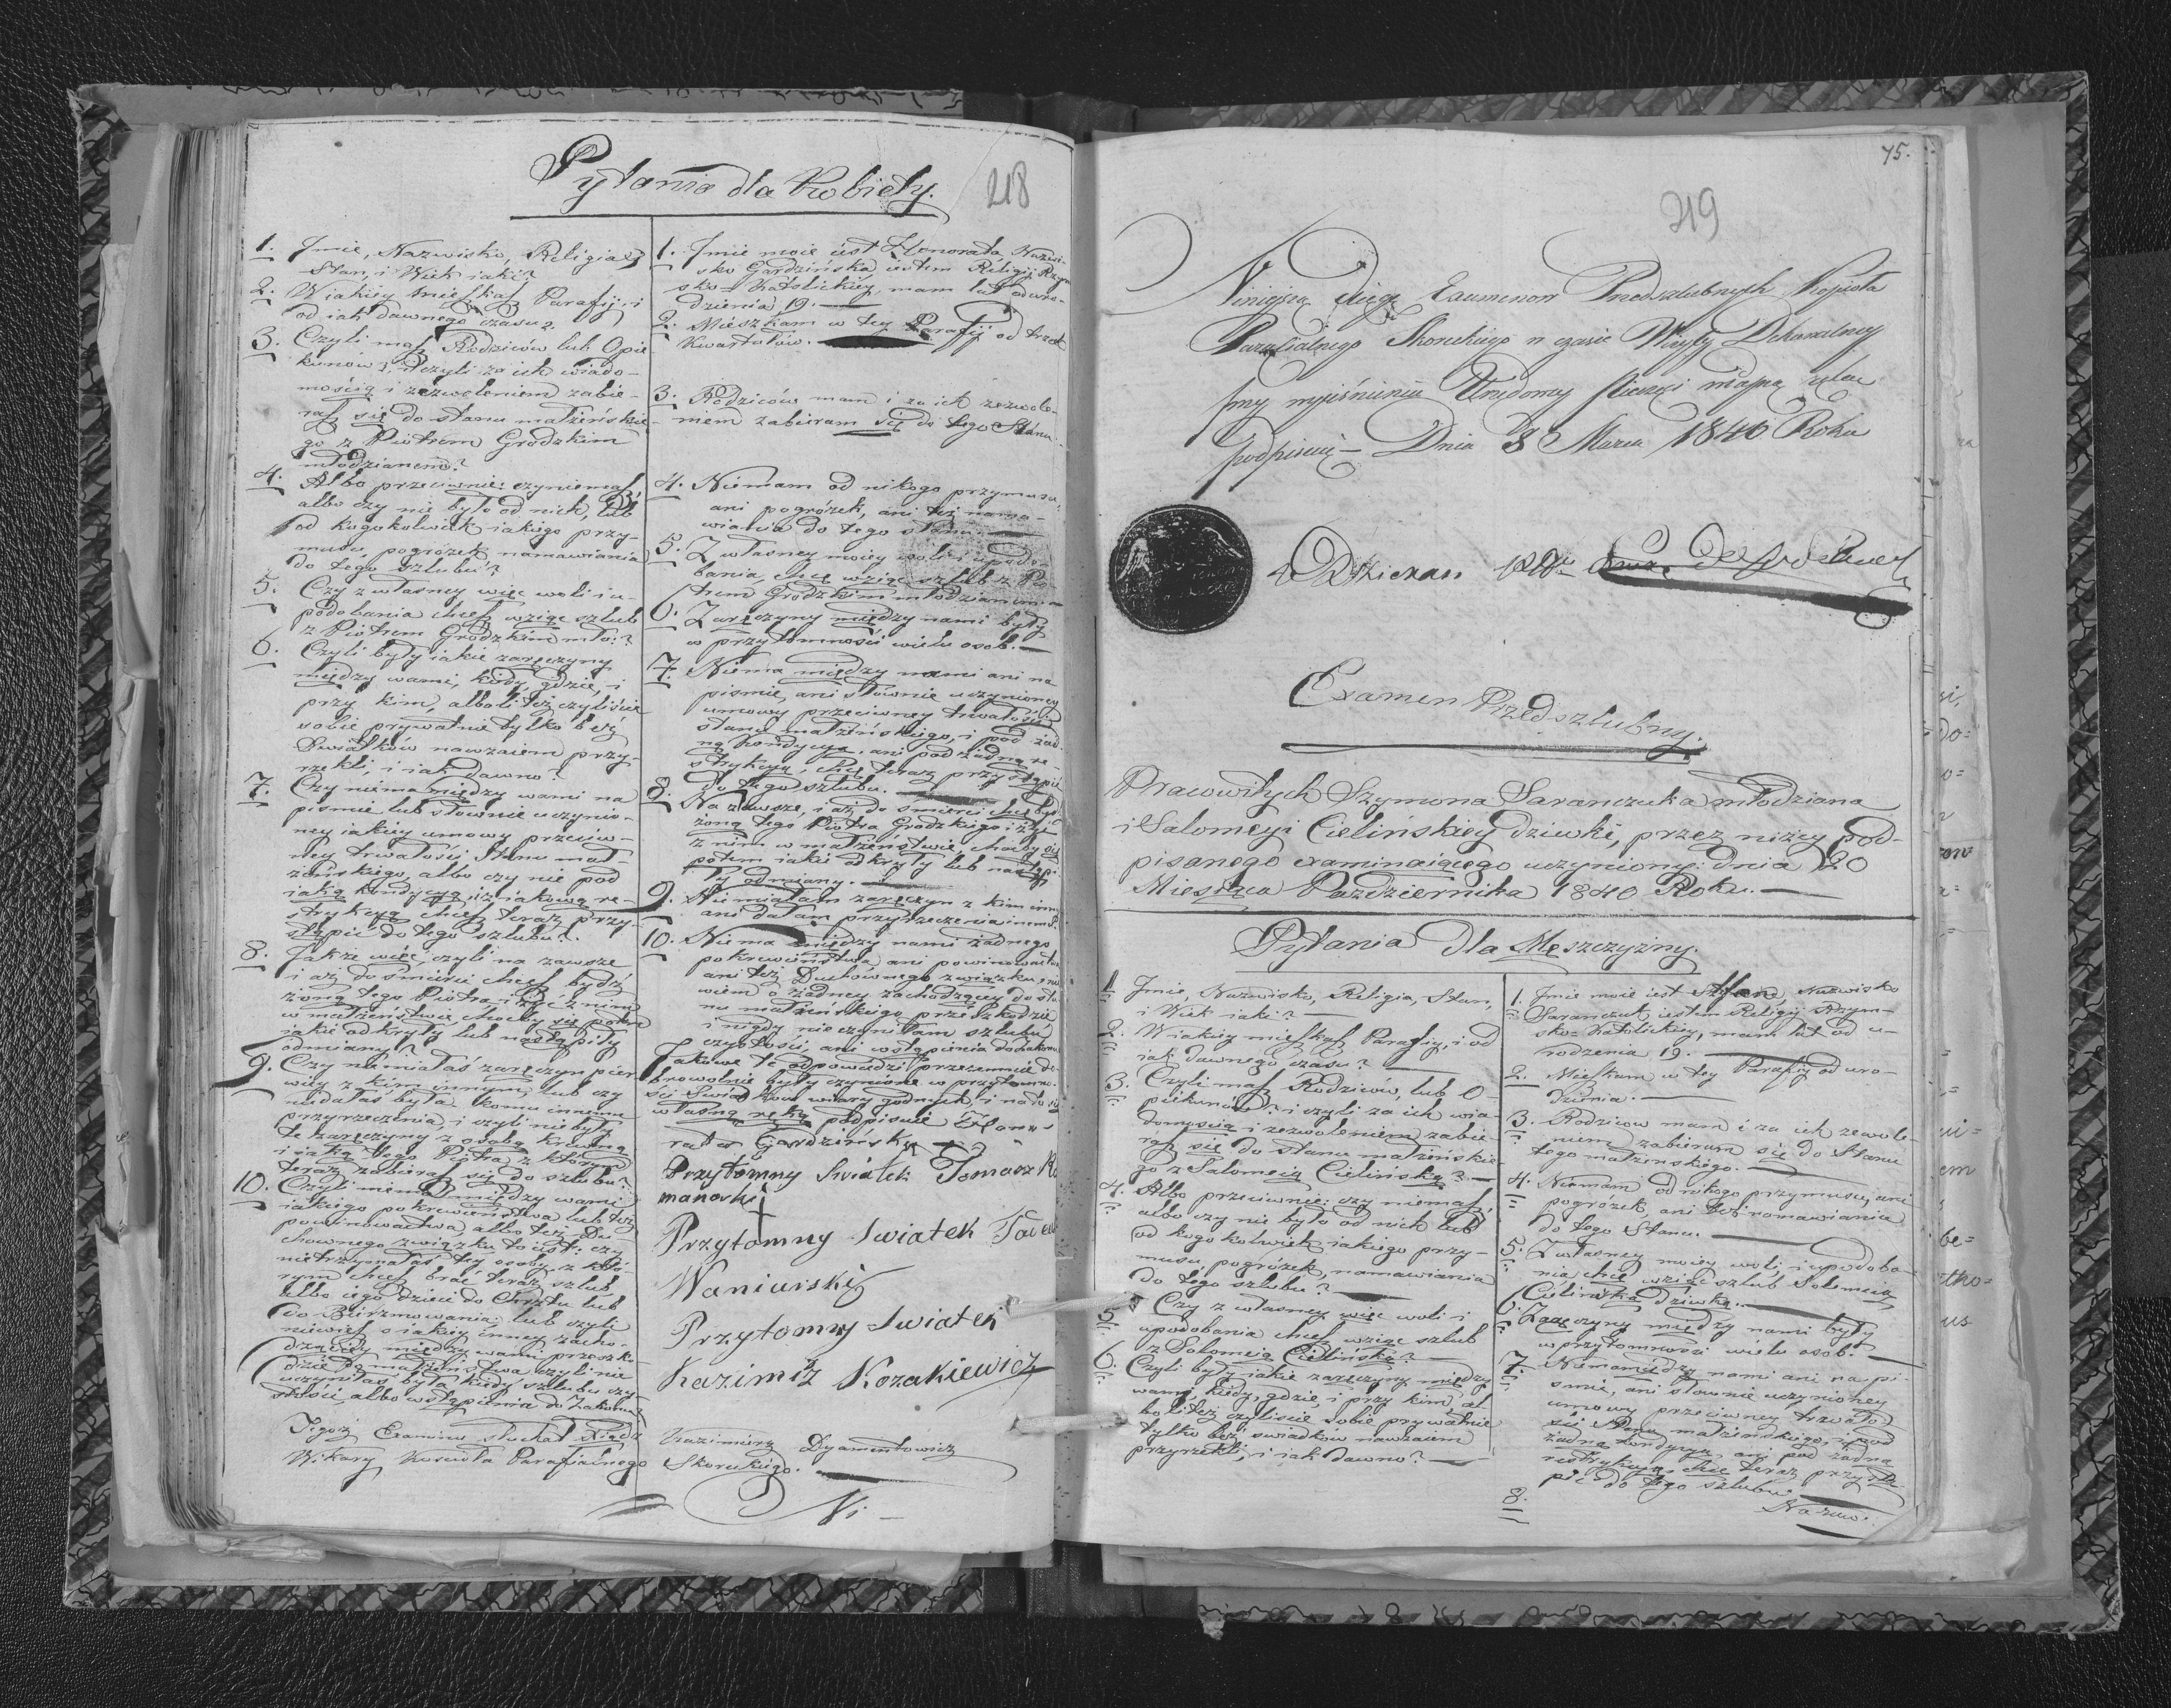 Pytania dla Kobiety.
218
1. Jmie, Nazwisko, Religia,
Stan, i Wiek iaki?
2. W iakiey mieszkasz Parafij, i
od iak dawnego czasu?
3. Czyli masz Rodziców lub Opie
kunów? i czyli za ich wiado-
mością i zezwoleniem zabie-
rasz się do stanu małżeńskie
go z Piotrem Grodzkim
młodzianem?
4. Albo przeciwnie: czy niemasz
albo czy nie było od nich, lub
od kogokolwiek iakiego przy-
musu, pogróżek namawiania
do tego szlubu?
5. Czy z własney więc woli i u-
podobania chcesz wziąć szlub
z Piotrem Grodzkim mło:?
6. Czyli były iakie zaręczyny
między wami, kiedy, gdzie, i
przy kim, albo li też czyliście
sobie prywatnie tylko bez
Swiadków nawzaiem przy-
rzekli, i iak dawno?
7. Czy niema między wami na
pismie lub słownie uczynio-
ney iakiey umowy przeciw-
ney trwałości Stanu mał-
żeńskiego, albo czy nie pod
iaką kondycyą i iakową re-
strykcyą chcesz teraz przy-
stąpić do tego szlubu?
8. Jakże więc, czyli na zawsze
i aż do śmierci chcesz bydź
żoną tego Piotra i żyć z nim
w małżeństwie, choćby się potem
iakie odkryły lub nastąpiły
odmiany?
9. Czy niemiałaś zaręczyn pier
wiey z kim innym, lub czy
niedałaś była komu innemu
przyrzeczenia, i czyli nie były
te zaręczyny z osobą krewną
i iaką tego Piotra z którym
teraz zabierasz się do szlubu?
10. Czyli niemasz między wami
iakiego pokrewieństwa lub też
powinowactwa, albo też Du-
chownego związku to iest: czy
nietrzymałaś tey osoby z któ-
rym chcesz brać teraz szlub
albo iego dzieci do Chrztu lub
do Bierzmowania: lub czyli
niewiesz o iakiey inney zacho-
dzącey między wami przeszko-
dzie do małżeństwa czyli nie
uczyniłaś była kiedy szlubu czy
stości, albo wstąpienia do Zakonu?
1. Jmie moie iest Honorata, Nazwi-
sko Gardzińska iestem Religij Rzym
sko-Katolickiey, mam lat od uro-
dzenia 19.
2. Mieszkam w tey Parafij od trzech
Kwartałów.
3. Rodziców mam i za ich zezwole-
niem zabieram się do tego Stanu.
4. Niemam od nikogo przymusu,
ani pogróżek, ani też nama-
wiania do tego stanu.
5. Z własney moiey woli i upodo-
bania, chcę wziąć szlub z Pio
trem Grodzkim młodzianem.
6. Zaręczyny między nami były
w przytomności wielu osob.
7. Niema między nami ani na
pismie, ani słownie uczynioney
umowy przeciwney trwałości
stanu małżeńskiego, i pod żad-
ną kondycyą, ani pod żadną re-
strykcyą, chcę teraz przystąpić
do tego szlubu.
8. Na zawsze, i aż do śmierci chcę być
żoną tego Piotra Grodzkiego i żyć
z nim w małżeństwie, choćby się
potem iakie odkryły lub nastąpi
ły odmiany.
9. Niemiałam zaręczyn z kim innym
ani dałam przyrzeczenia innemu.
10. Niema między nami żadnego
pokrewieństwa ani powinowactwa
ani też Duchownego związku, nie
wiem o żadney zachodzącey do sta
nu małżeńskiego przeszkodzie
i nigdy nie czyniłam szlubu
czystości, ani wstąpienia do Zakonu
Jakowe te odpowiedzi przezemnie do-
browolnie były czynione w przytomno-
sci Swiadków wiary godnych i na to się
własną ręką podpisuię Hono-
rata Gardzińska +
Przytomny Swiatek Tomasz Ro
manoski †
Przytomny Swiatek Pawel
Waniurski
Przytomny Swiatek
Kazimiz Kozakiewicz
Tegoż Examinu słuchał Xiądz Kazimierz Dyamentowicz
Wikary Kościoła Parafialnego Skoreckiego.
Ni-
75.
219
Ninieyszą Xięgę Examenow Przedszlubnych Kościoła
Parafialnego Skoreckiego w czasie Wizyty Dekanalney
przy wyiśnieniu Urzędowy Pieczęci własną ręką
podpisuię - Dnia 8 Marca 1840 Roku
Dziekan
Examen Przedszlubny.
Pracowitych Szymona Saranczuka młodziana
i Salomeyi Cielińskiey dziewki, przez niżey pod-
pisanego examinaiącego uczyniony: dnia 20
Miesiąca Pazdziernika 1840 Roku.
Pytania dla Męszczyzny.
1. Jmie, Nazwisko, Religia, Stan,
i Wiek iaki?
2. W iakiey mieszkasz Parafij, i od
iak dawnego czasu?
3. Czyli masz Rodziców, lub O-
piekunów? i czyli za ich wia-
domością i zezwoleniem zabie-
rasz się do stanu małżeńskie-
go z Salomeią Cielińską?
4. Albo przeciwnie: czy niemasz,
albo czy nie było od nich lub
od kogokolwiek iakiego przy-
musu, pogróżek, namawiania
do tego szlubu?
5. Czy z własney więc woli i
upodobania chcesz wziąć szlub
z Salomeją Cielińską?
6. Czyli były iakie zaręczyny między
wami, kiedy, gdzie, i przy kim, al-
bo li też czyliście sobie prywatnie
tylko bez swiadków nawzaiem
przyrzekli, i iak dawno?
1. Jmie moie iest, Nazwisko
Saranczuk iestem Religij Rzym-
sko-Katolickiey, mam lat od u-
rodzenia 19.
2. Mieszkam w tey Parafij od uro-
dzenia.
3. Rodziców mam i za ich zezwole-
niem zabieram się do Stanu
tego małżenskiego.
4. Niemam od nikogo przymusu, ani
pogróżek, ani też namawiania
do tego Stanu.
5. Z własney moiey woli i upodoba-
nia chcę wziąć szlub Salomeią
Cielinską dziewką.
6. Zaręczyny między nami były
w przytomności wielu osob.
7. Niemamiędzy nami ani na pi-
śmie, ani słownie uczynioney
umowy przeciwney trwało-
ści Stanu małżenskiego, i pod
żadną kondycyą, ani pod żadną
restrykcyą, chcę teraz przystą-
pić do tego szlubu.
8.
Na zaw: